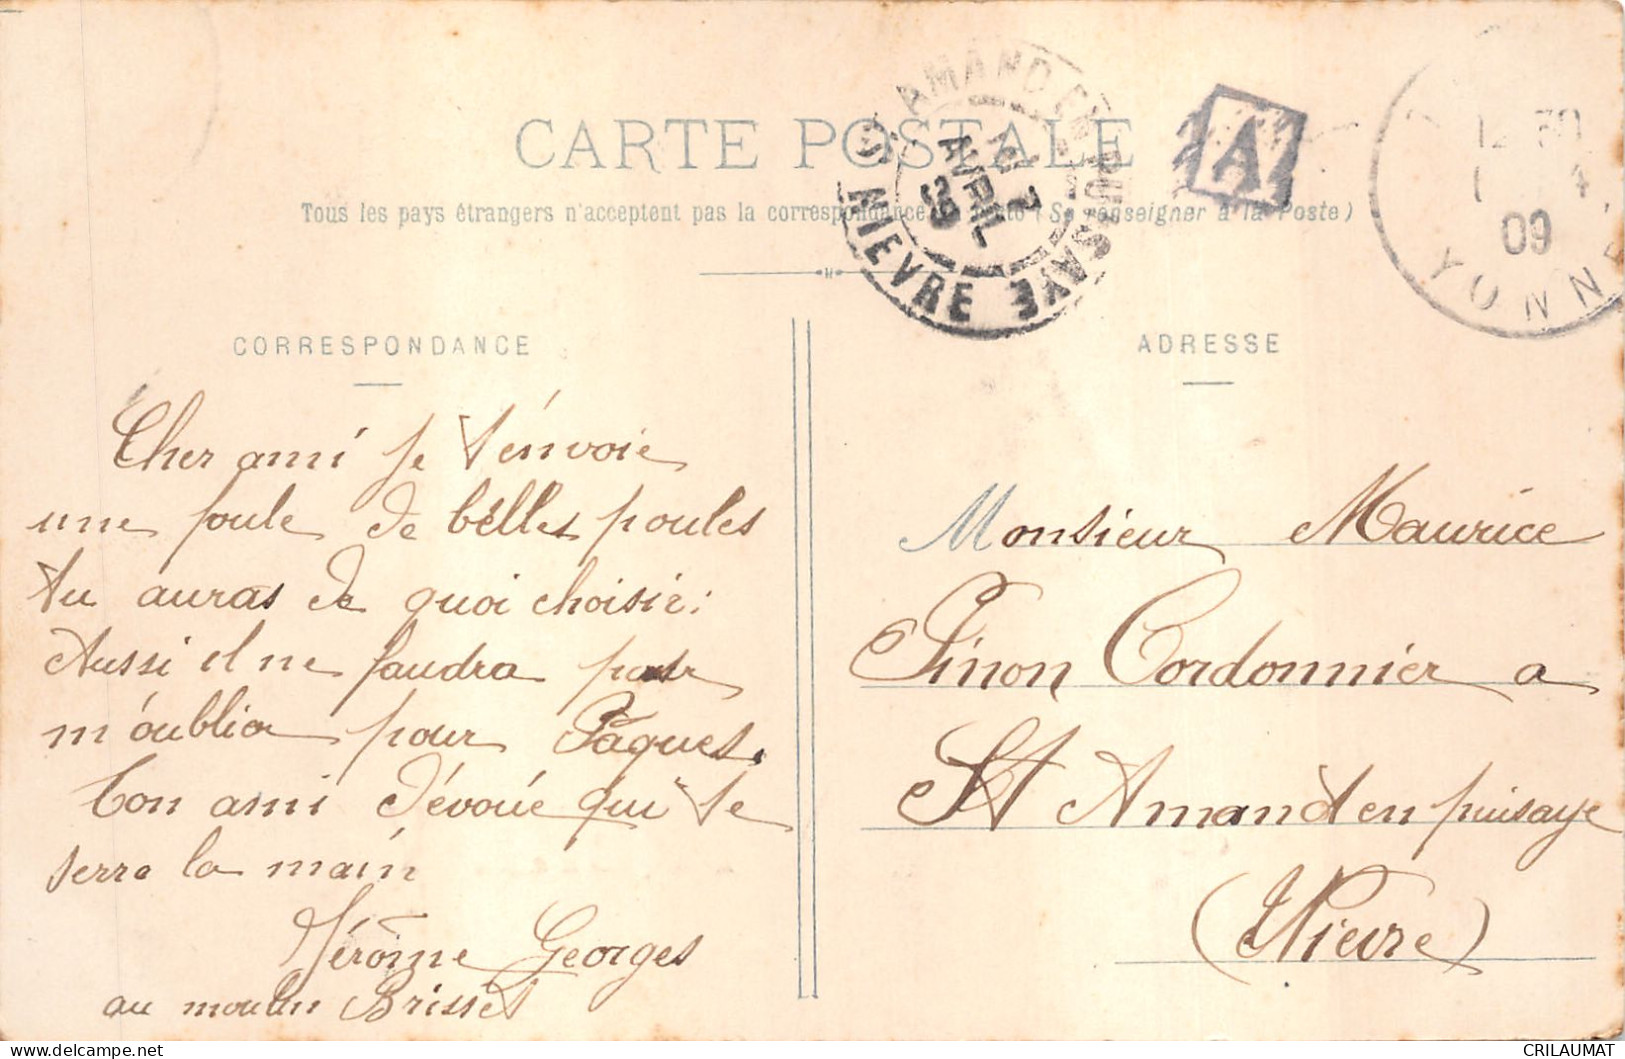 CARTE POSTALE
Tous les pays étrangers n'acceptent pas la correspondance au recto (Se renseigner à la Poste)
AMAND EN PUISAYE
NIEVRE
AVRIL
09
A
12 30
09
YONNE
CORRESPONDANCE
ADRESSE
Cher ami je t'envoie
une foule de belles poules
tu auras de quoi choisir:
Aussi il ne faudra pas
m'oublier pour Pâques.
Ton ami dévoué qui te
serre la main
Jérôme Georges
au moulin Brisset
Monsieur Maurice
Pinon Cordonnier a
St Amand en puisaye
(Nievre)
CRILAUMAT